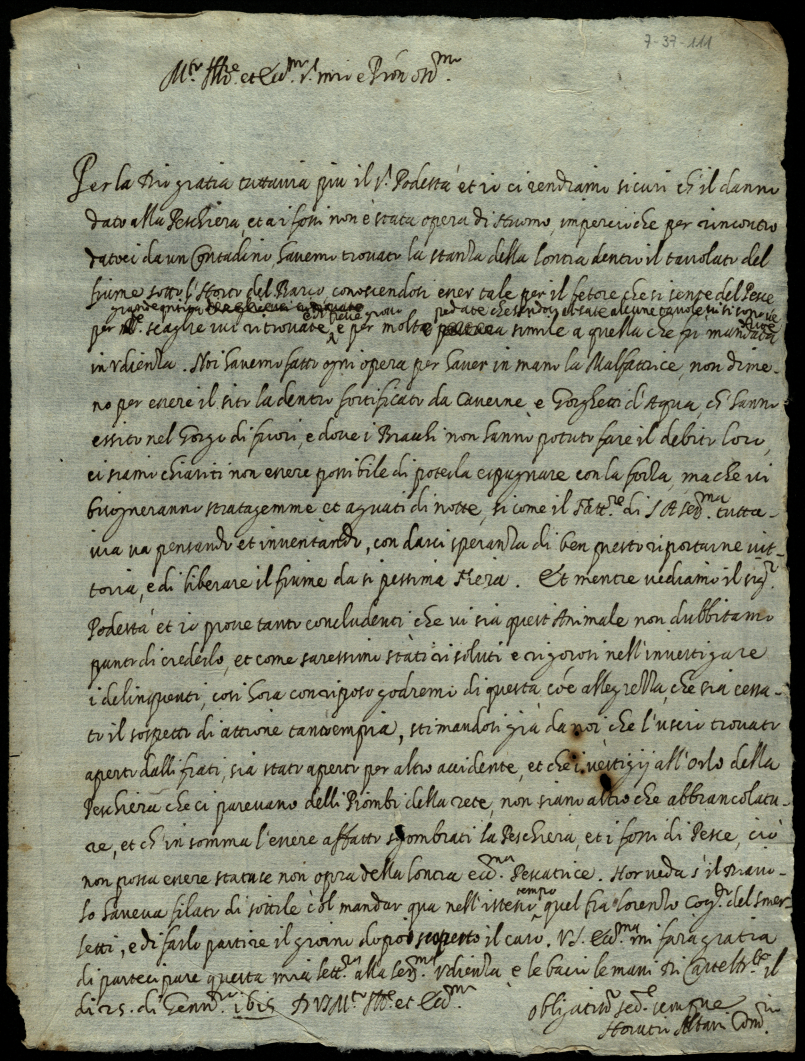 7-37-111
M.to Ill.re et Ecc.mo S.r mio e P.ron oss.mo
Per la Dio gratia tuttavia piu il S.r Podestà et io ci rendiamo sicuri ch'il danno
dato alla Peschiera, et a i fossi non è stata opera di Huomo, imperciò che per rincontro
datoci da un Contadino, havemo trovato la stanza della lontra dentro il tavolato del
fiume sotto l'Horto del Barco conoscendosi esser tale per il fetore che si sente del Pesce
per scaglie ivi ritrovate, e per molte simile a quella che si mandata
in Udienza. Noi havemo fatto ogni opera per haver in mano la Malfattrice, non dime-
no per essere il sito la dentro fortificato da Caverne, e Gorghetti d'Aqua, ch'hanno
essito nel Gorgo di fuori, e dove i Bracchi non hanno potuto fare il debito loro,
ci siamo chiariti non essere possibile di poterla espugnare con la forza, ma che vi
bisogneranno stratagemme et aguati di notte, si come il Fatt.re di S A Ser.ma tutta-
via va pensando et inventando, con darci speranza di ben presto riportarne vit-
toria, e di liberare il fiume da si pessima Fiera. Et mentre vediamo il Sig.r
Podestà et io prove tanto concludenti che vi sia quest'Animale non dubbitamo
punto di crederlo, et come saressimo stati risoluti e rigorosi nell'investigare
i delinquenti, così hora con riposo godremo di questa allegrezza, che sia cessa-
to il sospetto di attione tanto empia, stimandosi già da noi che l'uscio trovato
aperto dalli frati, sia stato aperto per altro accidente, et che i vestigij all'Orlo della
Peschiera che ci parevano delli Piombi della rete, non siano altro che abbrancolatu-
re, et ch'in somma l'essere affatto sgombrati la Peschiera, et i fossi di Pesce, ciò
non possa essere stato se non opra della lontra ecc.ma Pescatrice. Hor veda s'il Diavo-
lo haveva filato di sottile col mandar qua nell'istesso tempo quel fra Lorenzo del Smer-
letti, e di farlo partire il giorno dopò scoperto il caso. V.S. Ecc.ma mi farà gratia
di participare questa mia lett.ra alla Ser.ma Udienza e le bacio le mani Di il
di 25. di Genn.ro 1615 Di V.S. M.to Ill.re et Ecc.ma
oblig.mo ser.re sempre
Horatio Altani